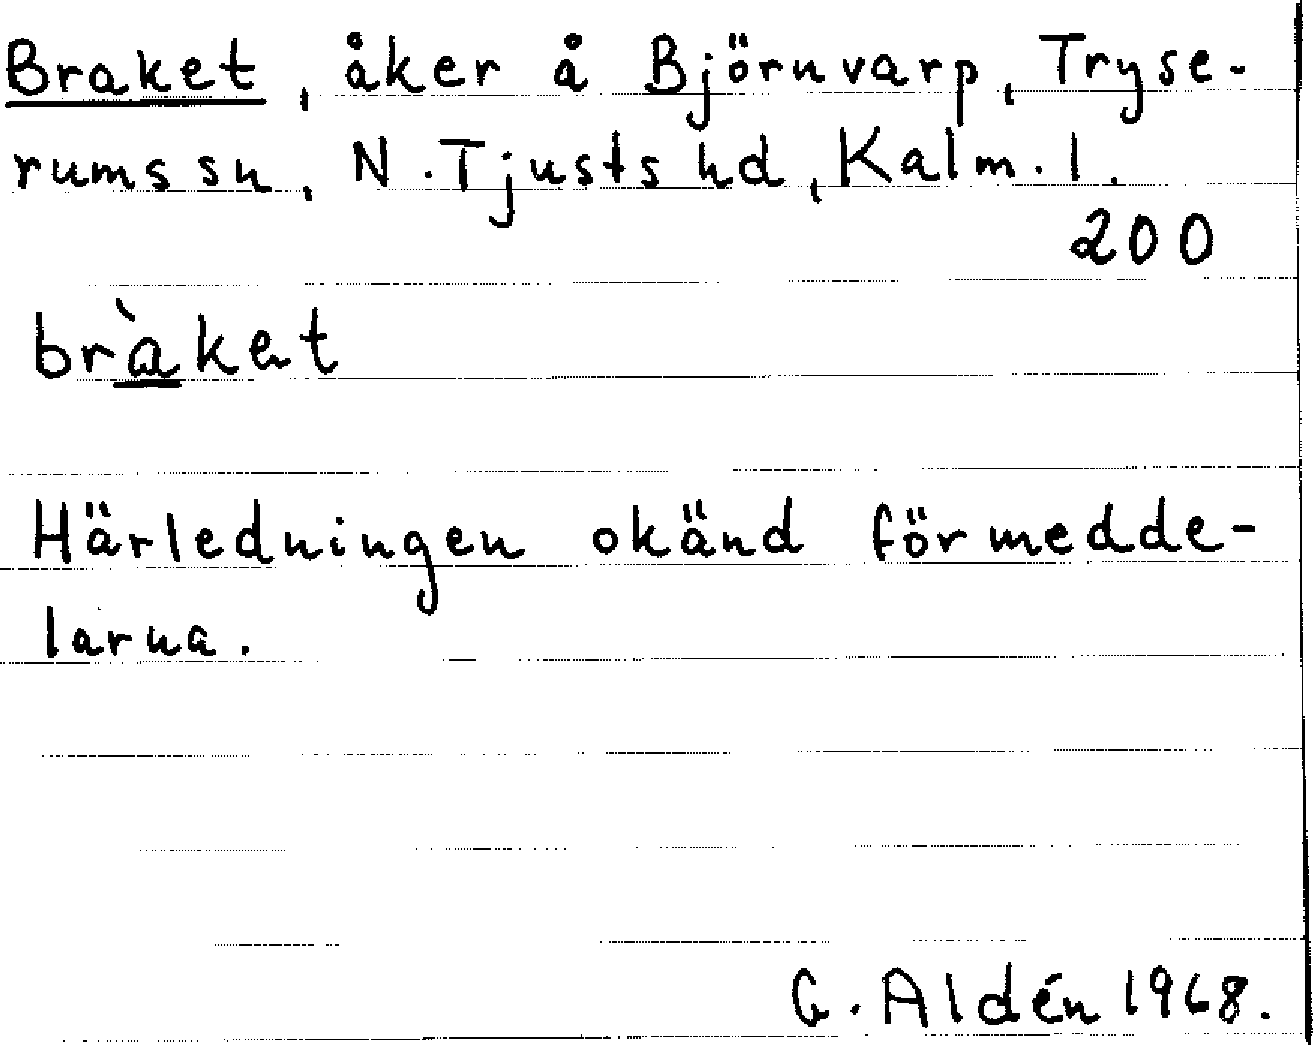 Braket, åker å Björnvarp, Tryse-
rums sn, N. Tjusts hd, Kalm. l.
200
bràket
Härledningen okänd för medde-
larna.
G. Aldén 1968.